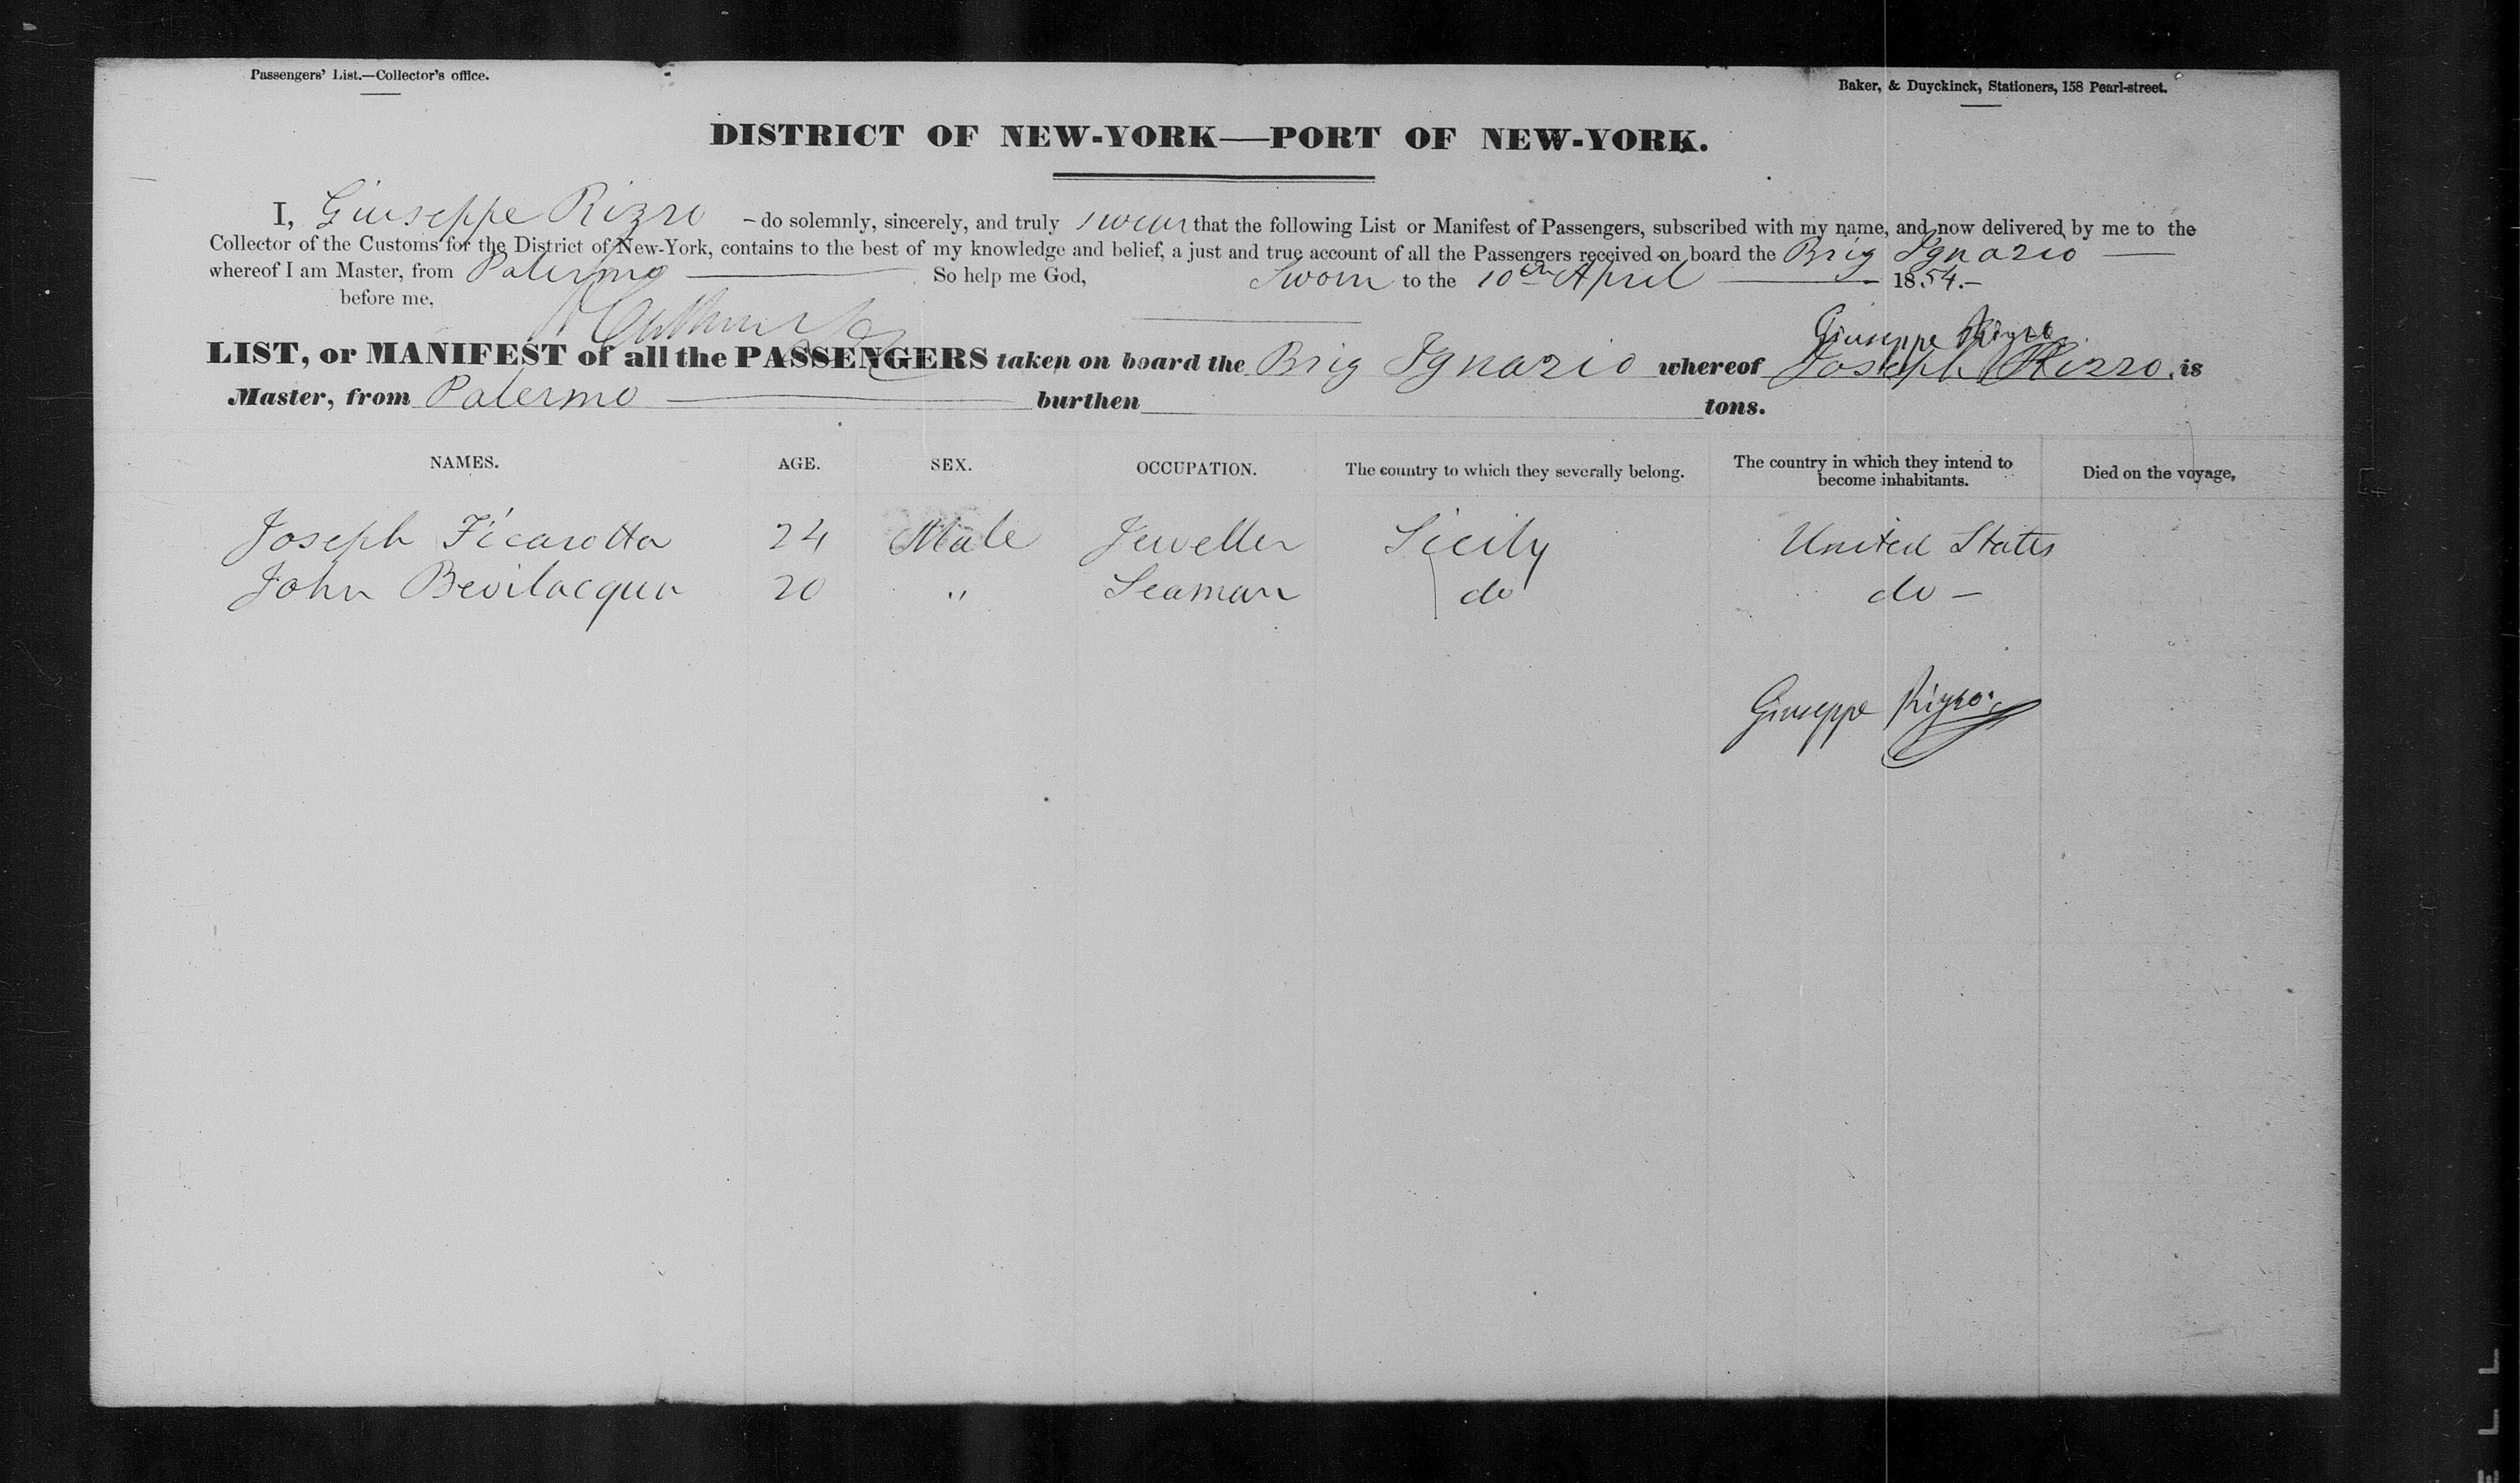 Passengers' List.—Collector's office.
Baker, & Duyckinck, Stationers, 158 Pearl-street.
DISTRICT OF NEW-YORK—PORT OF NEW-YORK.
I, Giuseppe Rizzo - do solemnly, sincerely, and truly swear that the following List or Manifest of Passengers, subscribed with my name, and now delivered by me to the
Collector of the Customs for the District of New-York, contains to the best of my knowledge and belief, a just and true account of all the Passengers received on board the Brig Ignazio —
whereof I am Master, from Palermo — So help me God, Sworn to the 10th April — 1854.-
before me,
Giuseppe Rizzo
LIST, or MANIFEST of all the PASSENGERS taken on board the Brig Ignazio whereof Joseph Rizzo, is
Master, from Palermo — burthen tons.
NAMES. AGE. SEX. OCCUPATION. The country to which they severally belong. The country in which they intend to become inhabitants. Died on the voyage,
Joseph Ficarotta 24 Male Jeweller Sicily United States
John Bevilacqua 20 " Seaman do do —
Giuseppe Rizzo